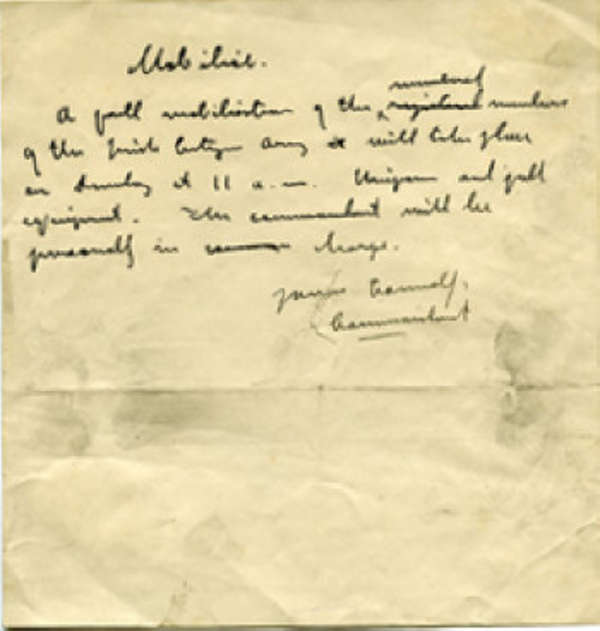 Mobilise.
numbered
A full mobilisation of the registered members
of the Irish Citizen Army will take place
on Sunday at 11 a.m. Uniform and full
equipment. The commandant will be
personally in charge.
James Connolly,
Commandant